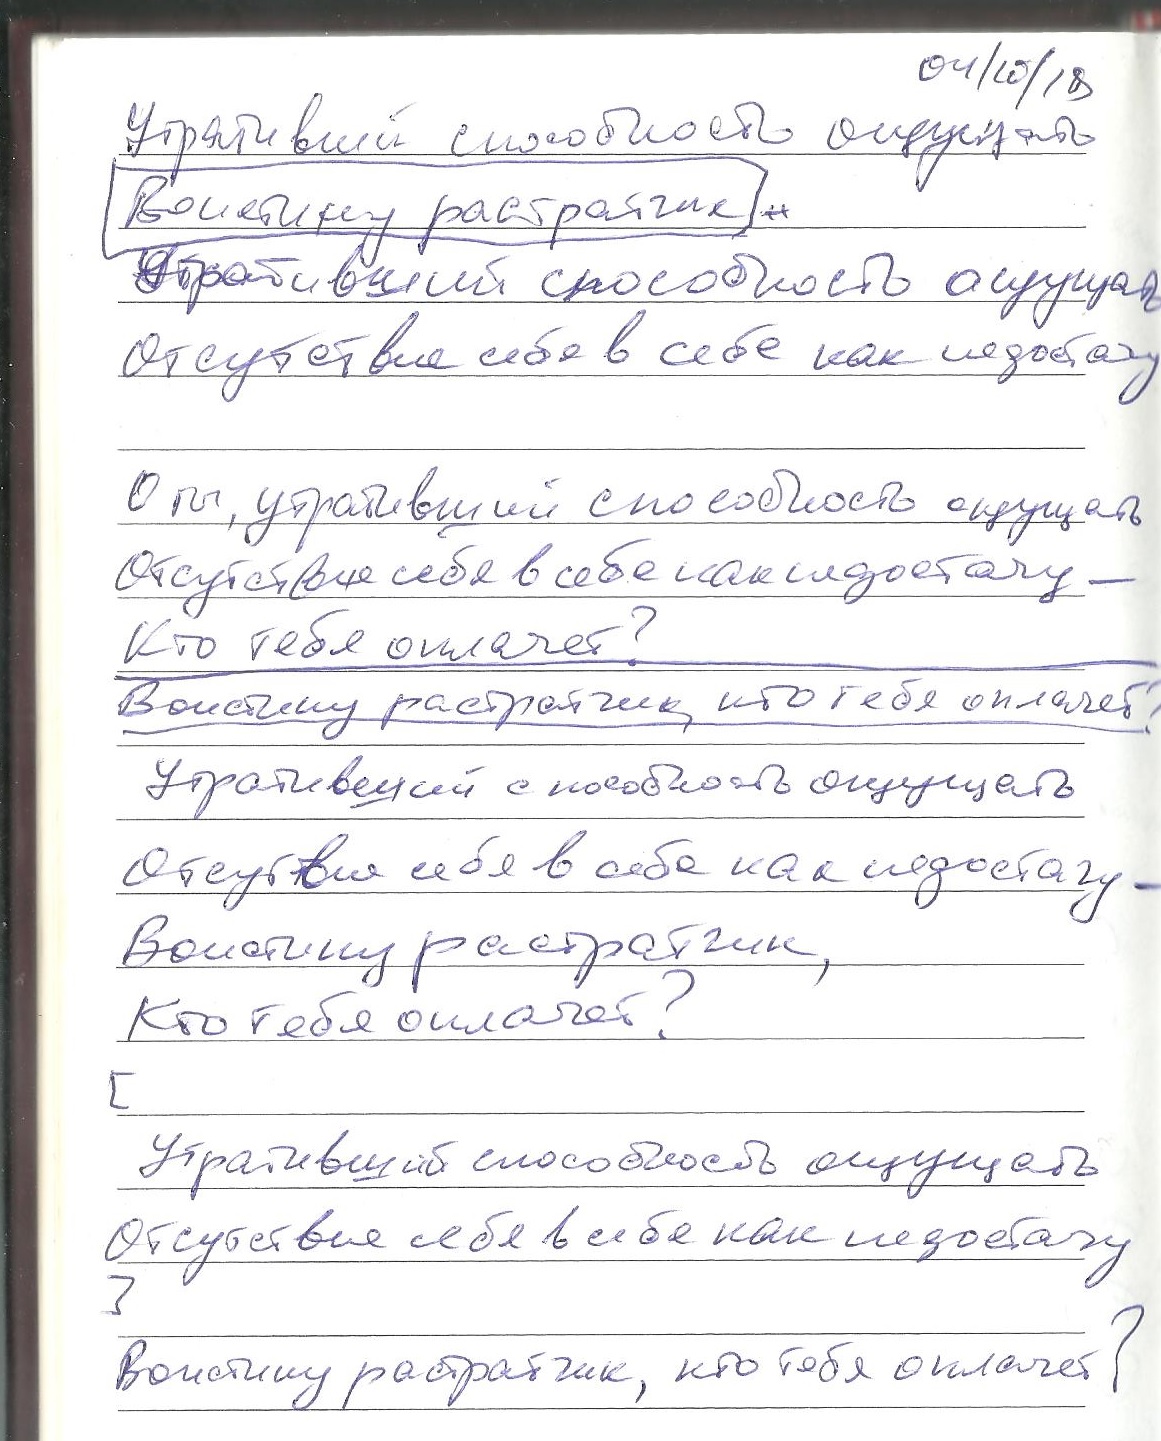 04/10/18
Утративший способность ощущать
Воистину растратчик
Утративший способность ощущать
Отсутствие себя в себе как недостачу
О ты, утративший способность ощущать
Отсутствие себя в себе как недостачу —
Кто тебя оплачет?
Воистину растратчик, кто тебя оплачет?
Утративший способность ощущать
Отсутвие себя в себе как недостачу —
Воистину растратчик,
Кто тебя оплачет?
[
Утративший способность ощущать
Отсутствие себя в себе как недостачу
]
Воистину растратчик, кто тебя оплачет?